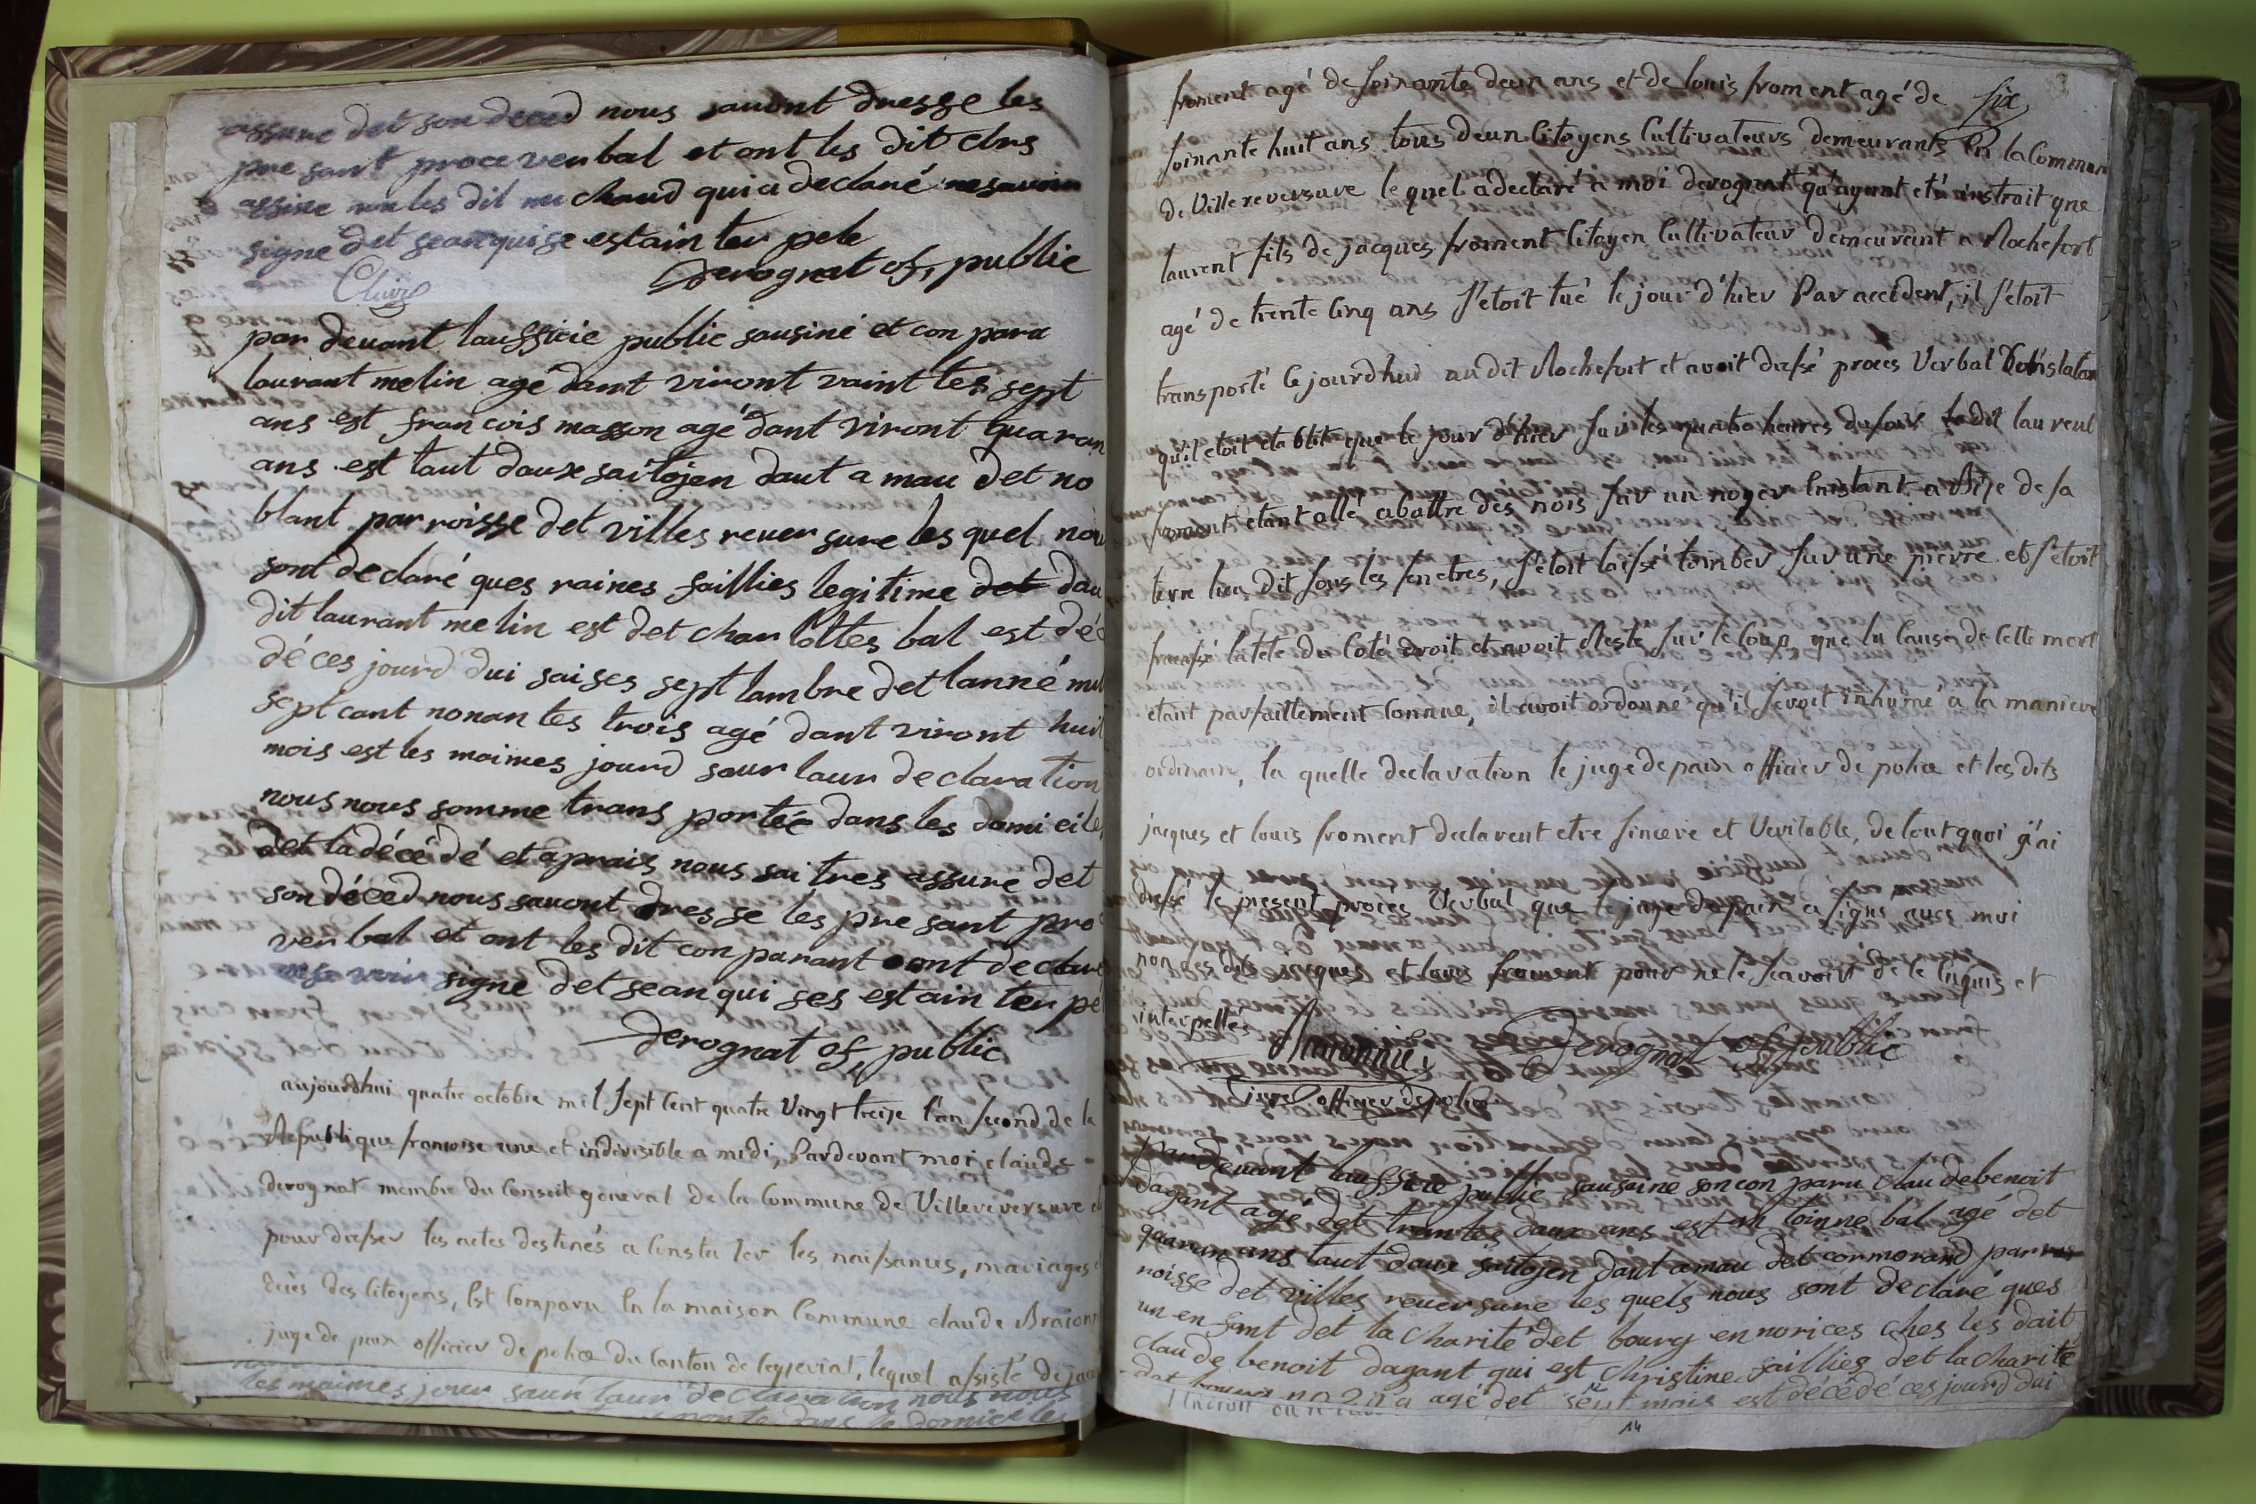 assure det son deced nous savont dresse les
pre sant proce ver bal et ont les dit clrs
assine non les dit michaud qui a declané ne savoir
signe det sean quise estain ter pele
Clair
Derognat of, public
par devant laussicie public sausiné et con para
laurant melin agé dant viront vaint tes sept
ans est francois masson agé dant viront quaran
ans est taut daux saitojen daut a mau det no
blant parroisse det villes rever sure les quel nou
sont declaré ques raines faillies legitime det dau
dit laurant melin est det charlottes bal est dé
dé ces jourd dui saises sept lambre det lanné mil
sept cant nonan tes trois agé dant viront huit
mois est les maimes jourd saur laur declaration
nous nous somme trans portée dans les domi cile
det la décédé et aprais nous saitres assure det
son déced nous savont dresse les pre sant pro
ver bal et ont les dit con parant ont declare
ne sa voir signe det sean qui ses estain ter pé
Derognat of public
aujourdhui quatre octobre mil sept cent quatre vingt treize l'an second de la
Republique francoise une et indivisible a midi, Pardevant moi claude
derognat membre du Conseil général de la Commune de Villereversure
pour dresser les actes destinés a Constater les naissances, mariages
décès des Citoyens, Est Comparu En la maison Commune claude Braconn
juge de paix officier de police du Canton de Ceyzeriat, lequel assisté de jac
les maimes jour saur laur declaration nous nous
froment agé de soixante deux ans et de louis froment agé de six
soixante huit ans tous deux Citoyens Cultivateurs demeurants En la Commun
de Villereversure lequel a declaré a moi derognat qu'ayant eté instruit que
laurent fils de jacques froment Citoyen Cultivateur demeurant a Rochefort
agé de trente Cinq ans s'etoit tué le jour d'hier Par accident, il s'etoit
transporté Cejourdhui audit Rochefort et avoit dressé procès Verbal
qu'il etoit etablit que le jour d'hier sur les quatre heures du soir ledit laurent
froment etant allé abattre des nois sur un noyer Existant a Bize de sa
terre lieu dit sous les fenetres, s'etoit laissé tomber sur une pierre et s'etoit
fracassé la tete du Coté droit et avoit Resté sur le Coup, que la Cause de Cette mort
etant parfaittement Connue, il avoit ordonné qu'il seroit inhumé a la maniere
ordinaire, la quelle declaration le juge de paix officier de police et les dits
jacques et louis froment declarent etre sincere et Veritable, de tout quoi j'ai
dressé le present proces Verbal que le juge de paix a signé avec moi
non les dits jacques et louis froment pour ne le scavoir de ce Enquis et
interpellés
Braconnier Derognat of public
juge officier de police
par devant laussicie public sausine son con paru Clau debenoit
dagant agé det trantes daux ans est an toinne bal agé det
quaran ans taut daux saitojen daut a mau det cormorand par
roisse det villes rever sure les quels nous sont declaré ques
un en fant det la charité det bourg en norices ches les dait
clau de benoit dagant qui est christine faillies det la charité
det bourg no 2 n a agé det sept mais est décédé ces jourd dui
14